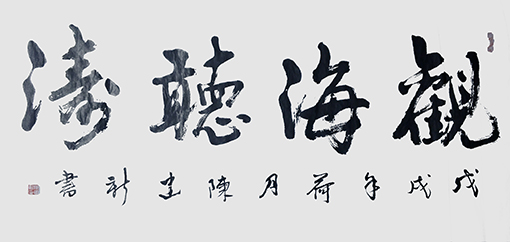 觀海聽濤
戊戌年荷月陳建新書